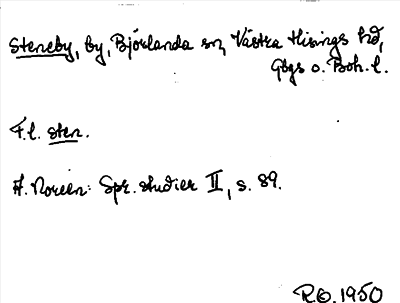 Steneby, by, Björlanda sn, Västra Hisings hd,
Gbgs o. Boh. l.
F.l. sten.
A. Noreen: Spr. studier II, s. 89.
R.O. 1950